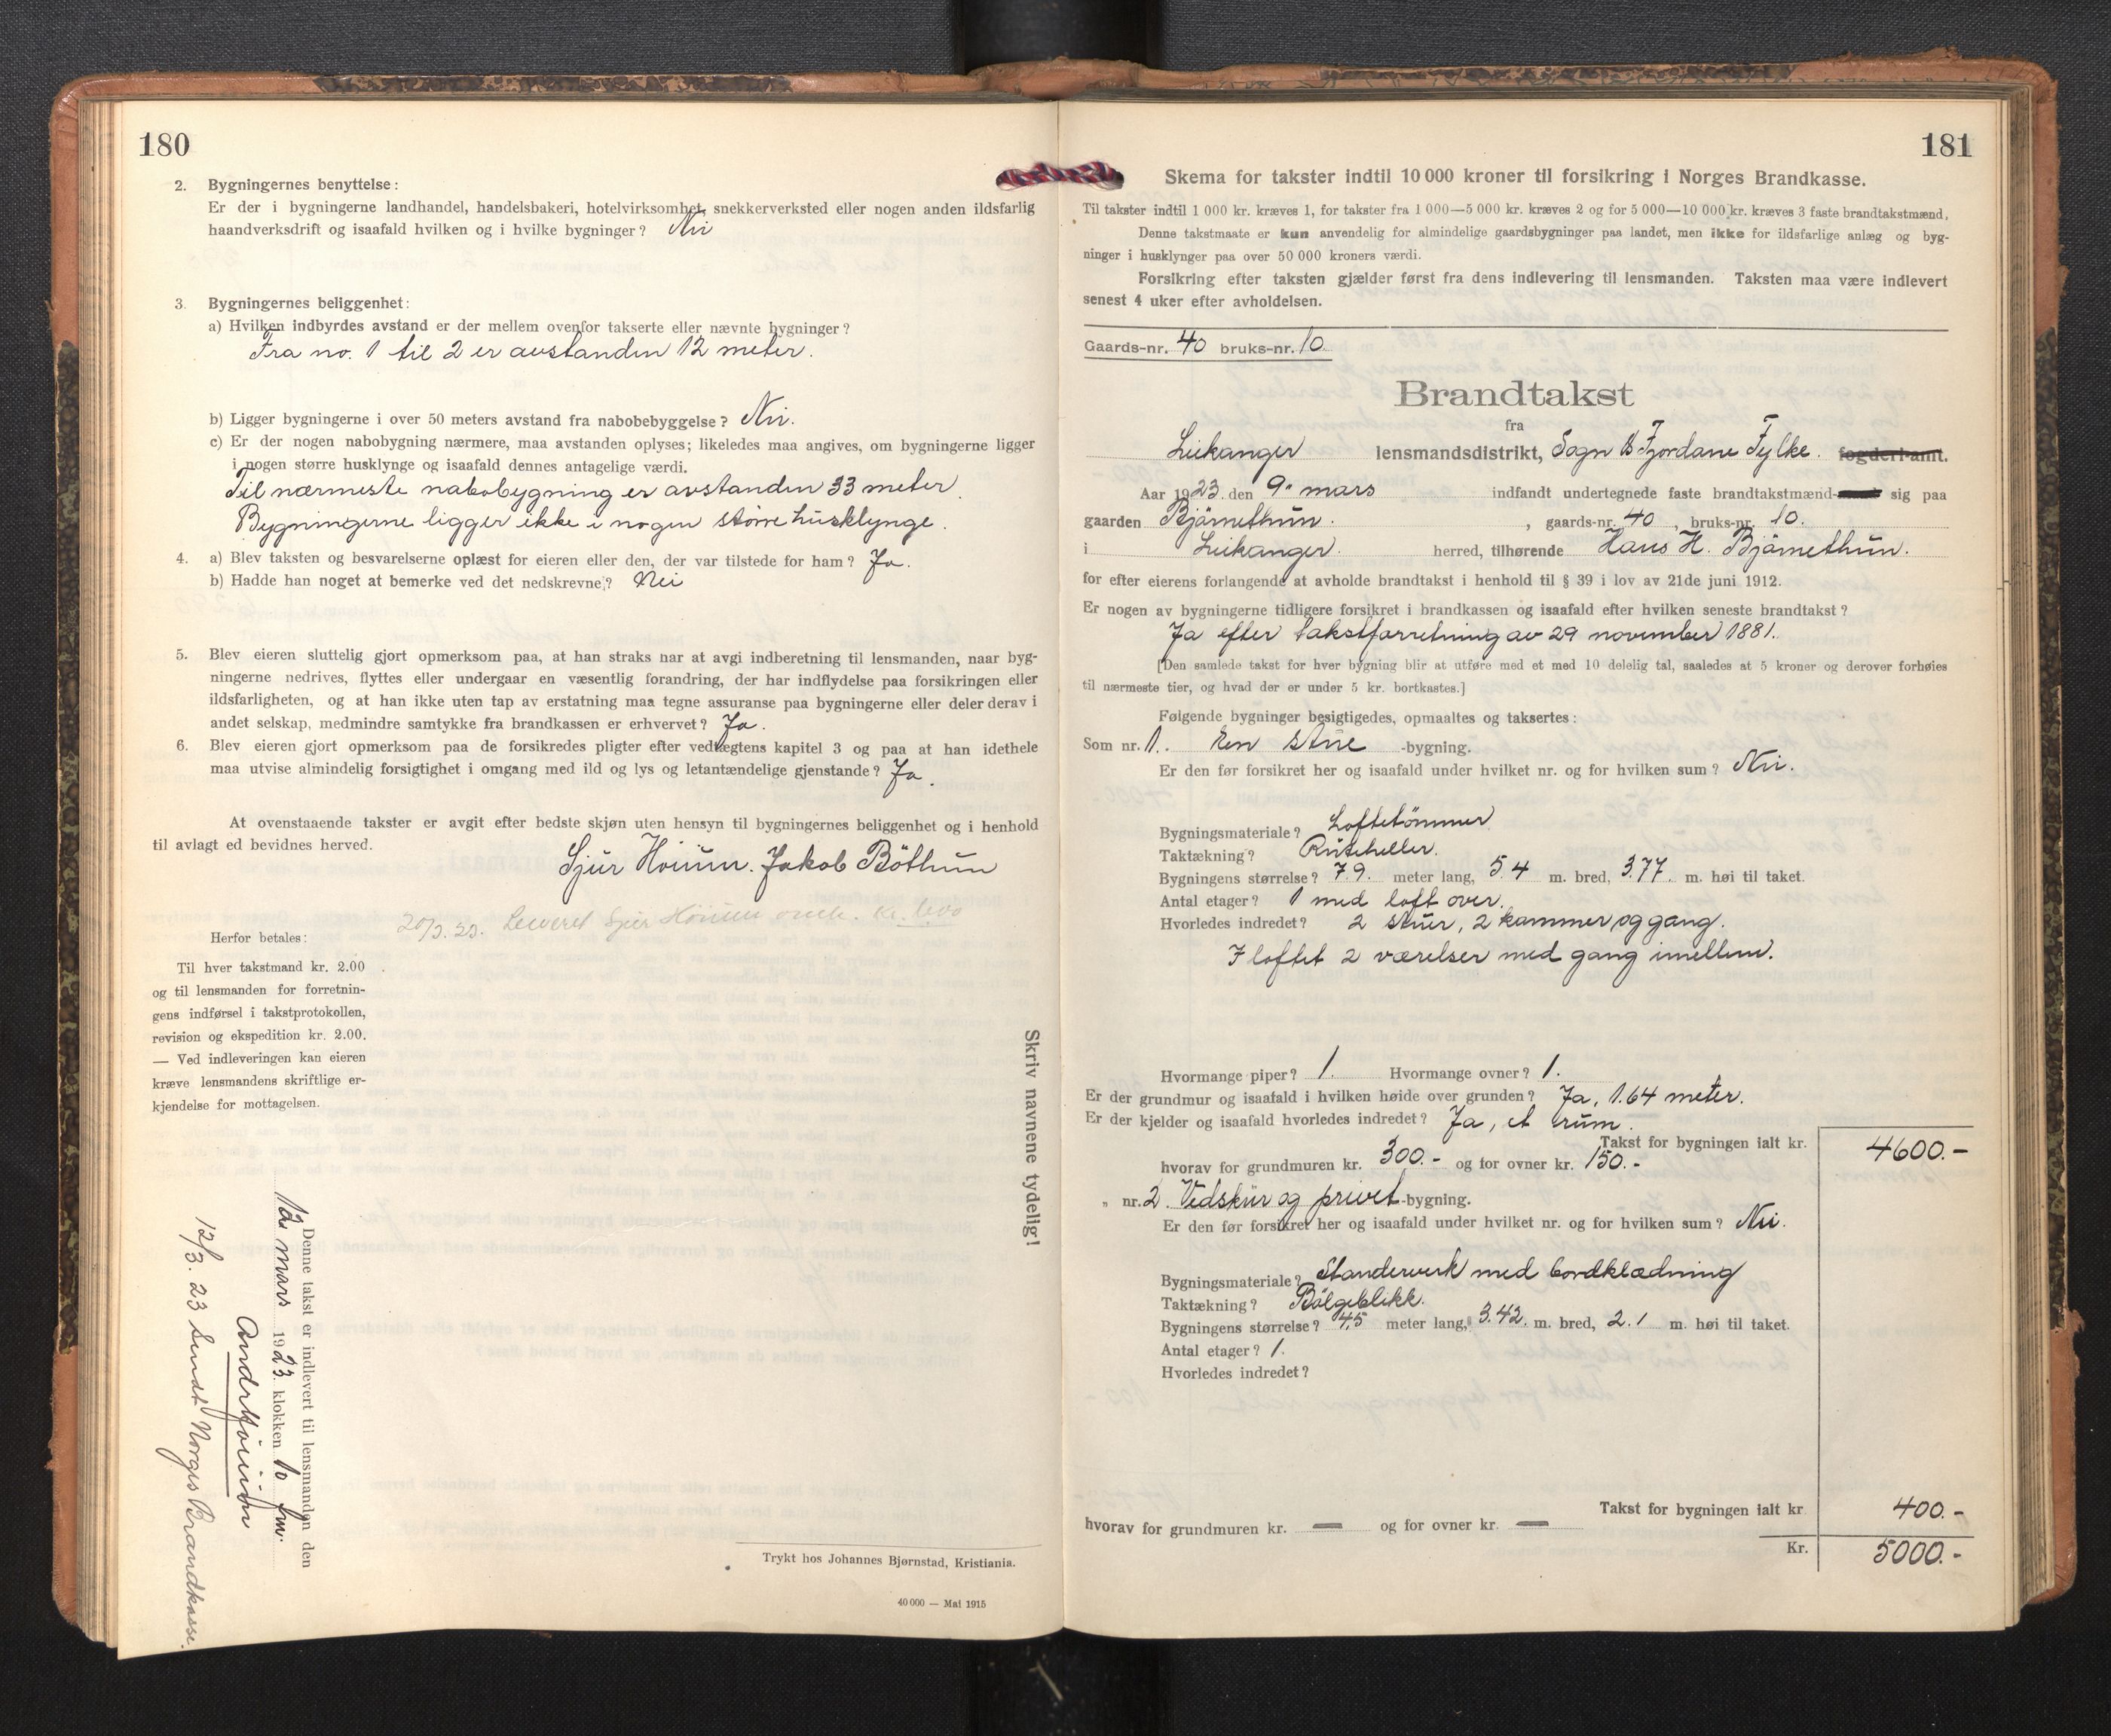 180
2. Bygningernes benyttelse:
Er der i bygningerne landhandel, handelsbakeri, hotelvirksomhet, snekkerverksted eller nogen anden ildsfarlig
haandverksdrift og isaafald hvilken og i hvilke bygninger? Nei
3. Bygningernes beliggenhet:
a) Hvilken indbyrdes avstand er der mellem ovenfor takserte eller nævnte bygninger?
Fra no. 1 til 2 er avstanden 12 meter.
b) Ligger bygningerne i over 50 meters avstand fra nabobebyggelse? Nei.
c) Er der nogen nabobygning nærmere, maa avstanden oplyses; likeledes maa angives, om bygningerne ligger
i nogen større husklynge og isaafald dennes antagelige værdi.
Til nærmeste nabobygning er avstanden 33 meter.
Bygningerne ligger ikke i nogen större husklynge.
4. a) Blev taksten og besvarelserne oplæst for eieren eller den, der var tilstede for ham? Ja.
b) Hadde han noget at bemerke ved det nedskrevne? Nei
5. Blev eieren sluttelig gjort opmerksom paa, at han straks har at avgi indberetning til lensmanden, naar byg-
ningerne nedrives, flyttes eller undergaar en væsentlig forandring, der har indflydelse paa forsikringen eller
ildsfarligheten, og at han ikke uten tap av erstatning maa tegne assuranse paa bygningerne eller deler derav i
andet selskap, medmindre samtykke fra brandkassen er erhvervet? Ja.
6. Blev eieren gjort opmerksom paa de forsikredes pligter efter vedtægtens kapitel 3 og paa at han idethele
maa utvise almindelig forsigtighet i omgang med ild og lys og letantændelige gjenstande? Ja.
At ovenstaaende takster er avgit efter bedste skjøn uten hensyn til bygningernes beliggenhet og i henhold
til avlagt ed bevidnes herved.
Sjur Höium. Jakob Böthun
20/3. 23. Leveret Sjur Höium
Herfor betales:
Til hver takstmand kr. 2.00
og til lensmanden for forretnin-
gens indførsel i takstprotokollen,
revision og ekspedition kr. 2.00.
— Ved indleveringen kan eieren
kræve lensmandens skriftlige er-
kjendelse for mottagelsen.
Skriv navnene tydelig!
Denne takst er indlevert til lensmanden den
12. mars 1923. klokken 10 fm.
12/3. 23 Sendt Norges Brandkasse.
Trykt hos Johannes Bjørnstad, Kristiania.
40 000 — Mai 1915
181
Skema for takster indtil 10 000 kroner til forsikring i Norges Brandkasse.
Til takster indtil 1 000 kr. kræves 1, for takster fra 1 000—5 000 kr. kræves 2 og for 5 000—10 000 kr. kræves 3 faste brandtakstmænd.
Denne takstmaate er kun anvendelig for almindelige gaardsbygninger paa landet, men ikke for ildsfarlige anlæg og byg-
ninger i husklynger paa over 50 000 kroners værdi.
Forsikring efter taksten gjælder først fra dens indlevering til lensmanden. Taksten maa være indlevert
senest 4 uker efter avholdelsen.
Gaards-nr. 40 bruks-nr. 10
Brandtakst
fra
Leikanger lensmandsdistrikt, Sogn & Fjordane Fylke. fogderi-amt.
Aar 1923. den 9. mars indfandt undertegnede faste brandtakstmænd sig paa
gaarden Bjärnethun. , gaards-nr. 40 , bruks-nr. 10.
i Leikanger. herred, tilhørende Hans H. Bjärnethun.
for efter eierens forlangende at avholde brandtakst i henhold til § 39 i lov av 21de juni 1912.
Er nogen av bygningerne tidligere forsikret i brandkassen og isaafald efter hvilken seneste brandtakst?
Ja efter takstforretning av 29 november 1881.
[Den samlede takst for hver bygning blir at utføre med et med 10 delelig tal, saaledes at 5 kroner og derover forhøies
til nærmeste tier, og hvad der er under 5 kr. bortkastes.]
Følgende bygninger besigtigedes, opmaaltes og taksertes:
Som nr. 1. Een stue -bygning.
Er den før forsikret her og isaafald under hvilket nr. og for hvilken sum? Nei.
Bygningsmateriale? Loftetömmer
Taktækning? Rutheller.
Bygningens størrelse? 7.9. meter lang, 5.4 m. bred, 3.77. m. høi til taket.
Antal etager? 1 med loft over.
Hvorledes indredet? 2 stuer, 2 kammer og gang.
I loftet 2 værelser med gang imellem.
Hvormange piper? 1. Hvormange ovner? 1.
Er der grundmur og isaafald i hvilken høide over grunden? Ja, 1.64 meter.
Er der kjelder og isaafald hvorledes indredet? Ja, et rum.
Takst for bygningen ialt kr. 4600.-
hvorav for grundmuren kr. 300.- og for ovner kr. 150.-
„ nr. 2. Vedskur og privet -bygning.
Er den før forsikret her og isaafald under hvilket nr. og for hvilken sum? Nei.
Bygningsmateriale? Standerverk med bordklædning
Taktækning? Bölgeblikk.
Bygningens størrelse? 4.5 meter lang, 3.42. m. bred, 2.1 m. høi til taket.
Antal etager? 1.
Hvorledes indredet?
Takst for bygningen ialt kr 400.-
hvorav for grundmuren kr. — og for ovner kr. —
Kr. 5000.-